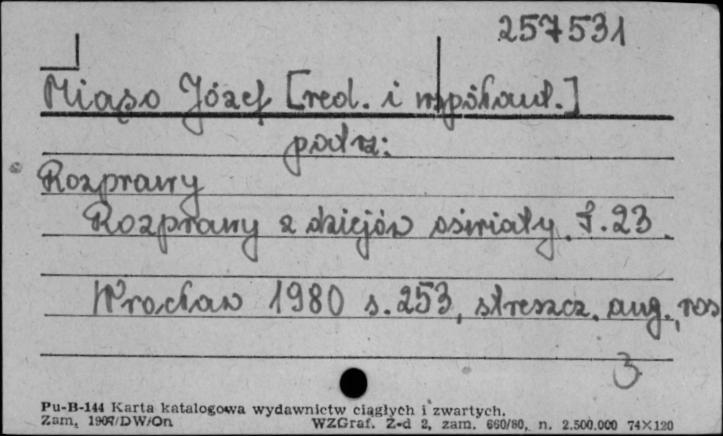 257531
Miąso Józef [red. i współaut.]
patrz:
Rozprawy
Rozprawy z dziejów oświaty. T.23.
Wrocław 1980 s.253, streszcz. ang., ros
3
Pu-B-144 Karta katalogowa wydawnictw ciągłych i zwartych.
Zam, 1907/DW/On WZGraf. Z-d 2, zam. 660/80, n. 2.500.000 74×120